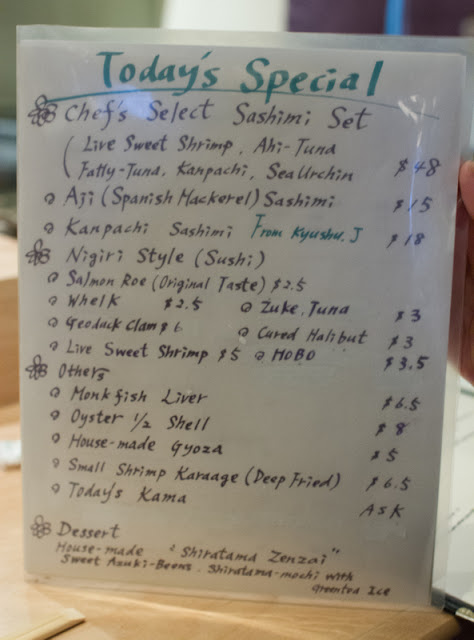 Today's Special
Chef's Select Sashimi Set
(Live Sweet Shrimp, Ahi-Tuna
Fatty-Tuna, Kanpachi, Sea Urchin $48
Aji (Spanish Mackerel) Sashimi $15
Kanpachi Sashimi From Kyushu, J $18
Nigiri Style (Sushi)
Salmon Roe (Original Taste) $2.5
Whelk $2.5 Zuke, Tuna $3
Geoduck Clam $6 Cured Halibut $3
Live Sweet Shrimp $5 HOBO $3.5
Others
Monkfish Liver $6.5
Oyster 1/2 Shell $8
House-made Gyoza $5
Small Shrimp Karaage (Deep Fried) $6.5
Today's Kama ASK
Dessert
House-made "Shiratama Zenzai"
Sweet Azuki-Beans, Shiratama-mochi with
Greentea Ice